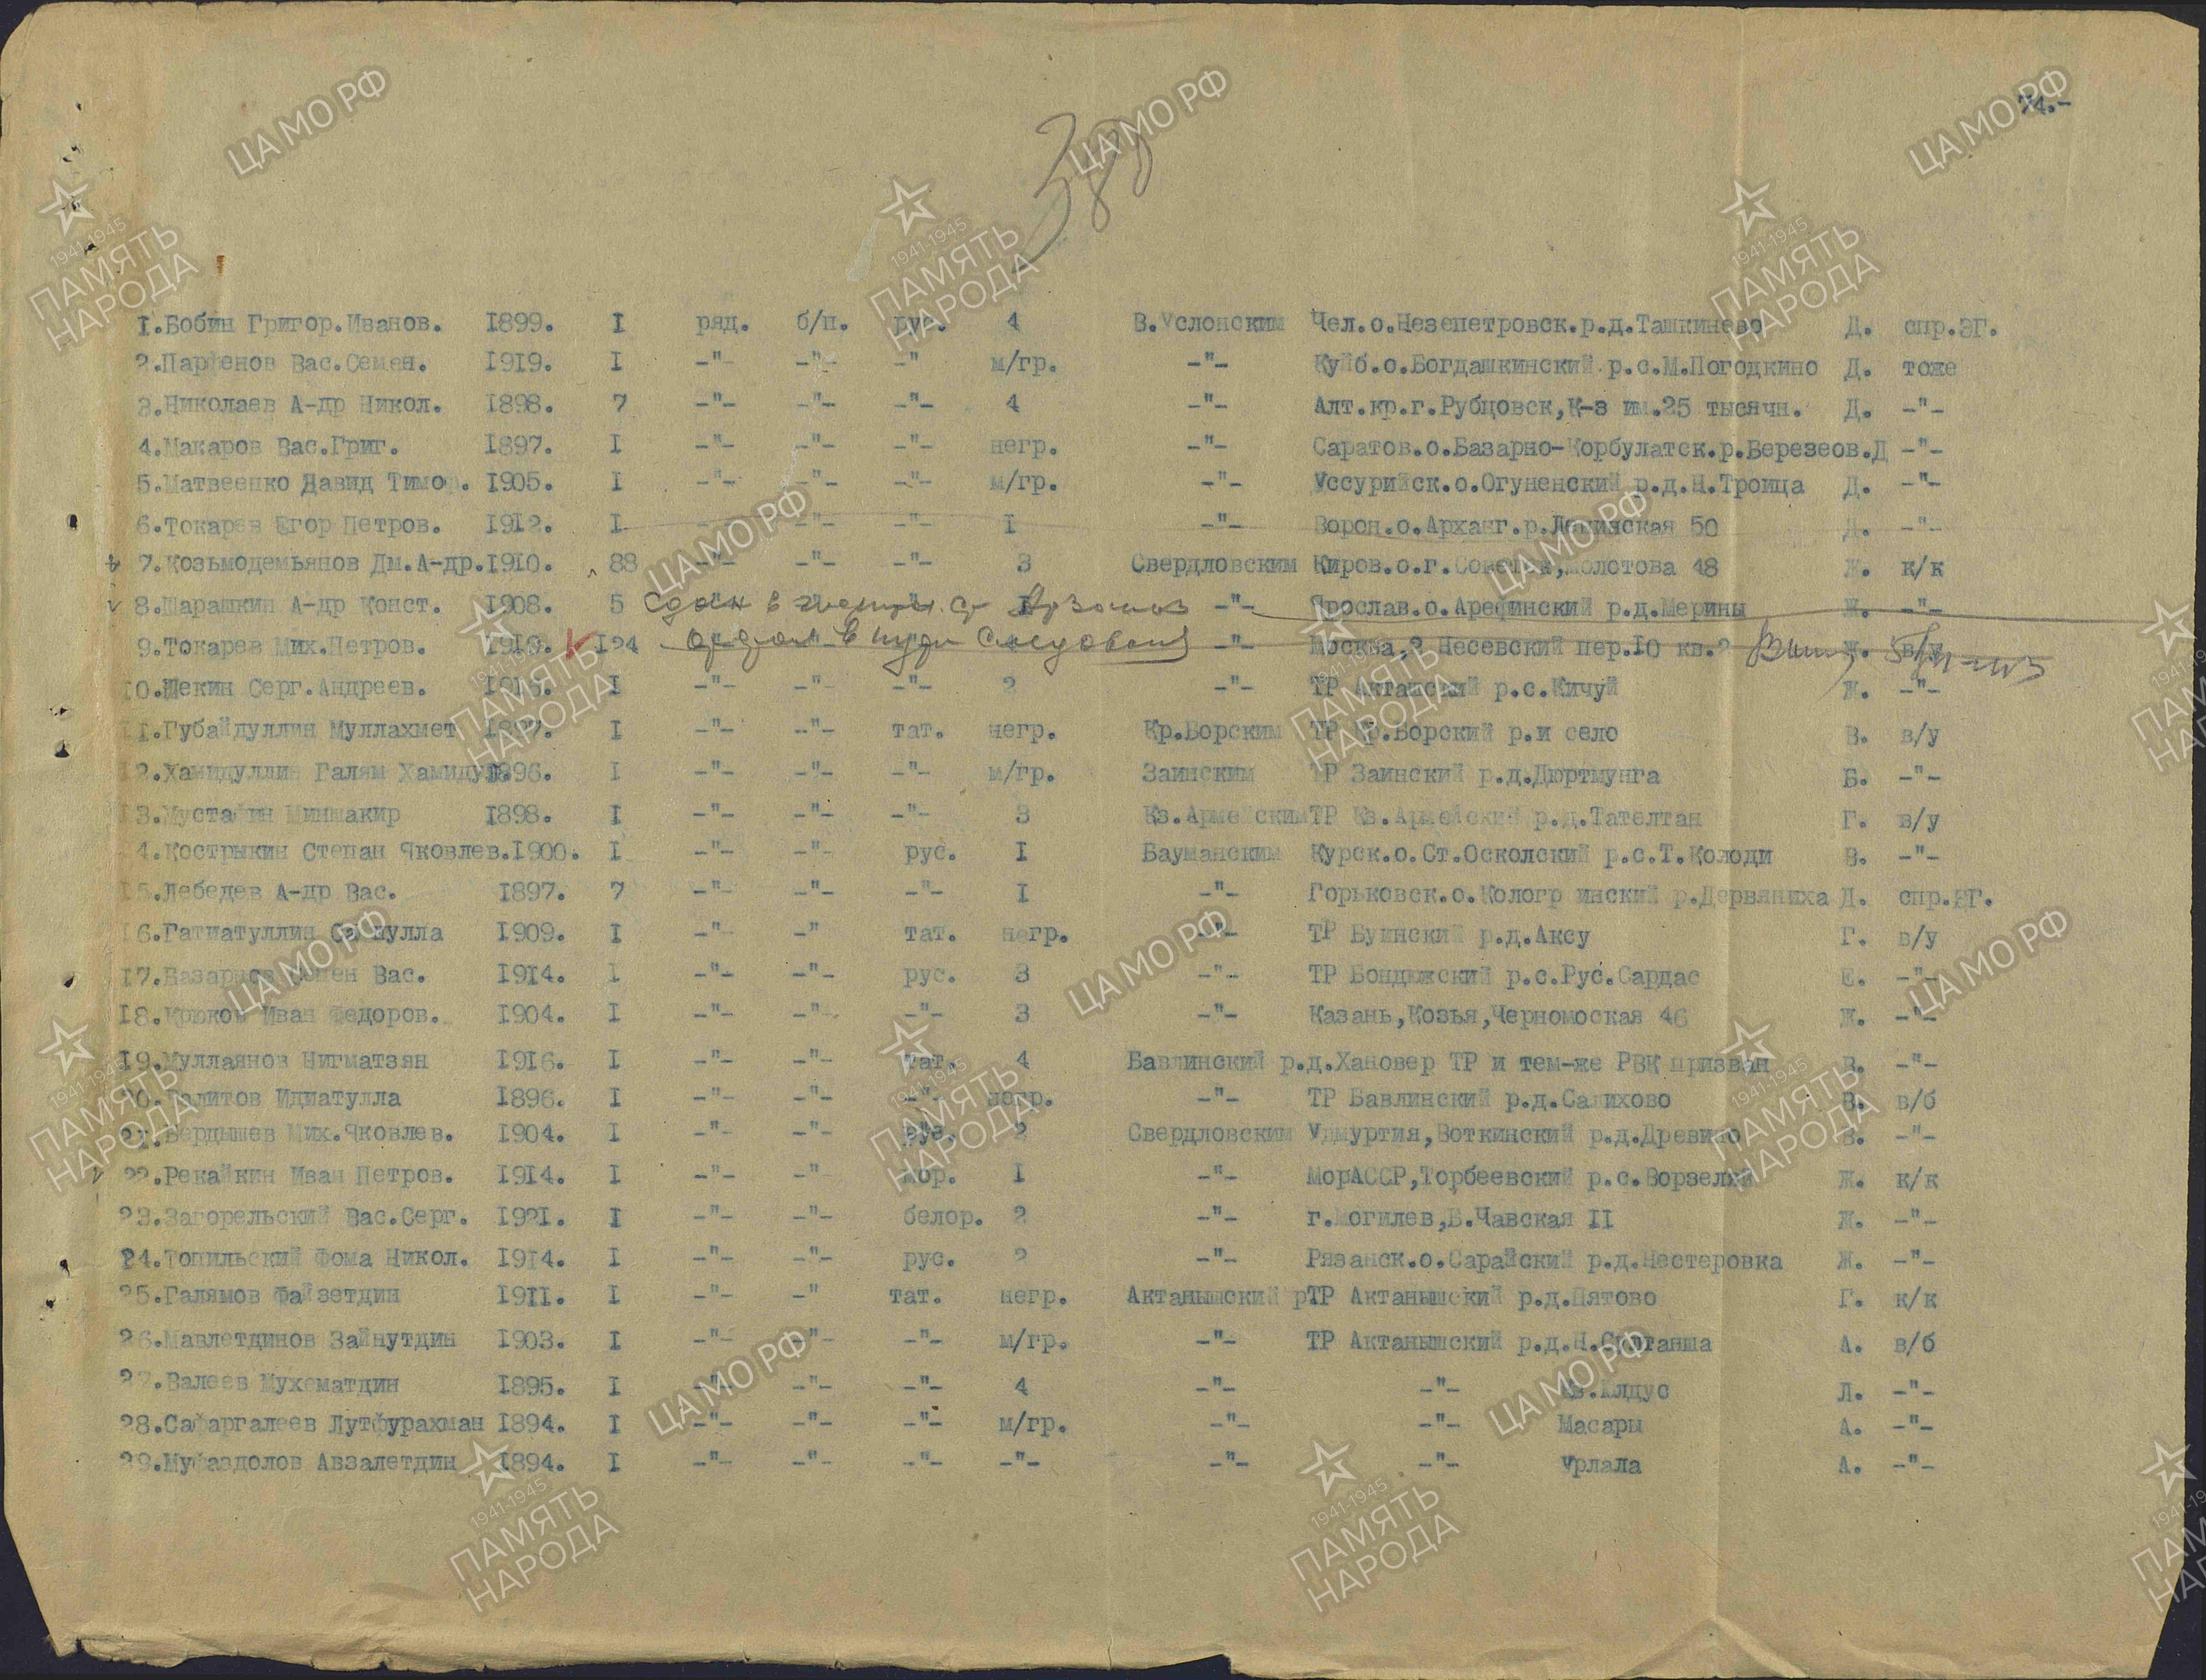 74.-
388
1.Бобин Григор.Иванов. 1899. I ряд. б/п. рус. 4 В.Услонским Чел.о.Незепетровск.р.д.Ташкинево Д. спр.ЭГ.
2.Парфенов Вас.Семен. 1919. I -"- -"- -" м/гр. -"- Куйб.о.Богдашкинский р.с.М.Погодкино Д. тоже
3.Николаев А-др Никол. 1898. 7 -"- -"- -"- 4 -"- Алт.кр.г.Рубцовск,К-з им.25 тысячн. Д. -"-
4.Макаров Вас.Григ. 1897. I -"- -"- -"- негр. -"- Саратов.о.Базарно-Корбулатск.р.Березеов.Д -"-
5.Матвеенко Давид Тимоф. 1905. I -"- -"- -"- м/гр. -"- Уссурийск.о.Огуненский р.д.Н.Троица Д. -"-
6.Токарев Егор Петров. 1912. I - -"- -"- I -"- Ворон.о.Арханг.р.Ленинская 50 Д. -"-
7.Козьмодемьянов Дм.А-др.1910. 88 -"- -"- -"- 3 Свердловским Киров.о.г. Молотова 48 Ж. к/к
8.Шарашкин А-др Конст. 1908. 5 Сдан в Арзамас -"- Ярослав.о.Арефинский р.д.Мерины Ж. -"-
9.Токарев Мих.Петров. 1919. 124 в пути следования -"- Москва,2 Несевский пер.10 кв.2 Ж. в/у
10.Шекин Серг.Андреев. I -"- -"- -"- 2 -"- ТР Акташский р.с.Кичуй Ж. -"-
11.Губайдуллин Муллахмет 1897. I -"- -"- тат. негр. Кр.Борским ТР Кр.Борский р.и село В. в/у
12.Хамидуллин Галям Хамидул. 1896. I -"- -"- -"- м/гр. Заинским ТР Заинский р.д.Дюртмунга Б. -"-
13.Мустафин Миншакир 1898. I -"- -"- -"- 3 Кз.Армейским ТР Кз.Армейский р.д.Тателтан Г. в/у
14.Кострыкин Степан Яковлев.1900. I -"- -"- рус. I Бауманским Курск.о.Ст.Осколский р.с.Т.Колоди В. -"-
15.Лебедев А-др Вас. 1897. 7 -"- -"- -"- I -"- Горьковск.о.Кологр инский р.Дервяниха Д. спр.ЭГ.
16.Гатиатуллин 1909. I -"- -" тат. негр. -"- ТР Буинский р.д.Аксу Г. в/у
17.Назаров Семен Вас. 1914. I -"- -"- рус. 3 -"- ТР Бондюжский р.с.Рус.Сардас Е. -"-
18.Крюков Иван Федоров. 1904. I -"- -"- -"- 3 -"- Казань,Козья,Черномоская 46 Ж. -"-
19.Муллаянов Нигматзян 1916. I -"- -"- тат. 4 Бавлинский р.д.Хановер ТР и тем-же РВК призван В. -"-
20.Валитов Идиатулла 1896. I -"- -"- -"- негр. -"- ТР Бавлинский р.д.Салихово В. в/б
21.Бердышев Мих.Яковлев. 1904. I -"- -"- рус. 2 Свердловским Удмуртия,Воткинский р.д.Древино В. -"-
22.Рекайкин Иван Петров. 1914. I -"- -"- мор. I -"- МорАССР,Торбеевский р.с.Ворзеляй Ж. к/к
23.Загорельский Вас.Серг. 1921. I -"- -"- белор. 2 -"- г.Могилев,Б.Чавская II Ж. -"-
24.Топильский Фома Никол. 1914. I -"- -"- рус. 2 -"- Рязанск.о.Сарайский р.д.Нестеровка Ж. -"-
25.Галямов Файзетдин 1911. I -"- -" тат. негр. Актанышский р ТР Актанышский р.д.Пятово Г. к/к
26.Мавлетдинов Зайнутдин 1903. I -"- -"- -"- м/гр. -"- ТР Актанышский р.д.Н.Султанша А. в/б
27.Валеев Мухоматдин 1895. I -"- -"- -"- 4 -"- -"- Кз.Юлдус Л. -"-
28.Сафаргалеев Лутфурахман 1894. I -"- -"- -"- м/гр. -"- -"- Масары А. -"-
29.Муфаздолов Авзалетдин 1894. I -"- -"- -"- -"- -"- -"- Урлала А. -"-
ЦА МО РФ
1941-1945
ПАМЯТЬ
НАРОДА